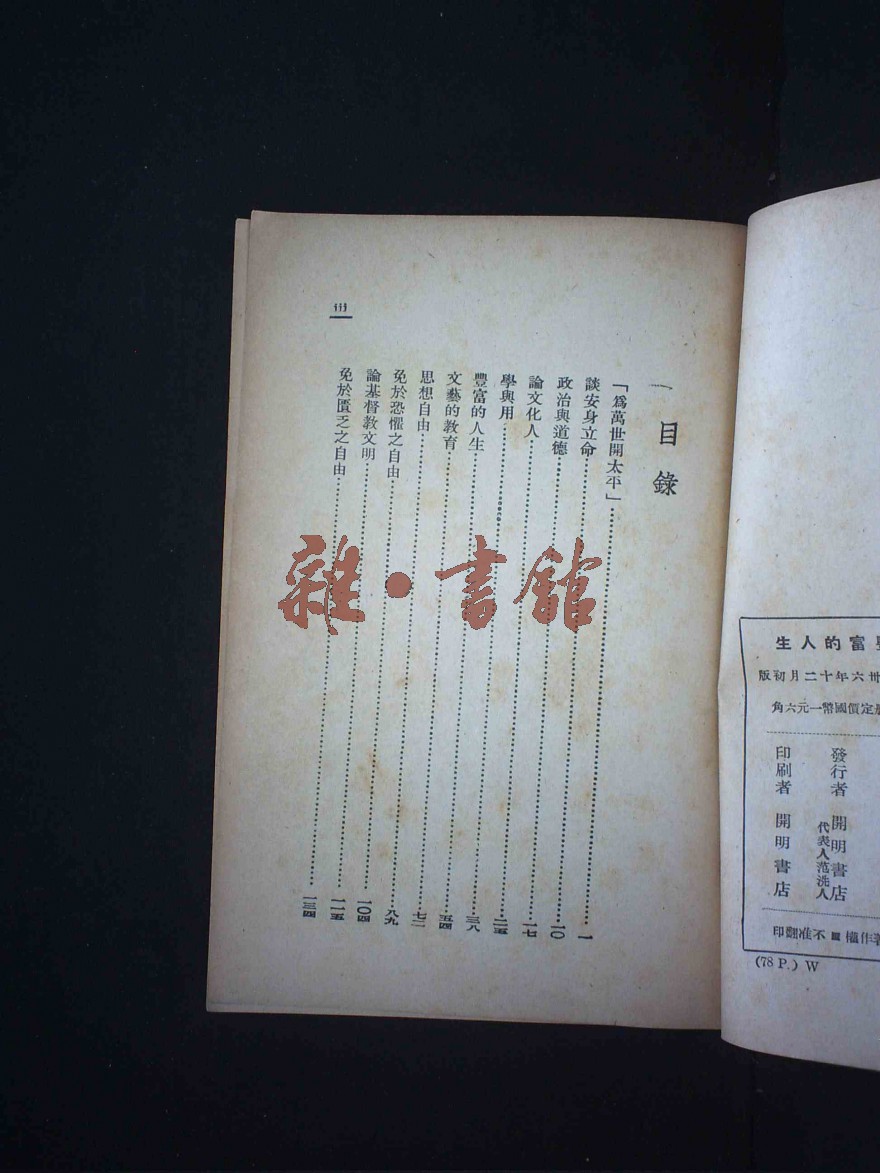 目錄
「爲萬世開太平」……一
談安身立命……一〇
政治與道德……一七
論文化人……二五
學與用……三八
豐富的人生……五四
文藝的教育……七二
思想自由……八九
免於恐懼之自由……一〇四
論基督教文明……一一五
免於匱乏之自由……一三四
iii
雜·書館
富的人生
卅六年十二月初版
定價國幣一元六角
發行者 開明書店
代表人范洗人
印刷者 開明書店
著作權 不准翻印
(78 P.) W